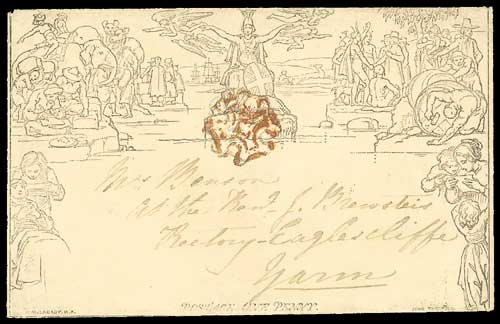 Mrs Benson
at the Revd. J. Brewster's
Rectory - Eaglescliffe
Yarm
POSTAGE ONE PENNY.
W. MULREADY, R.A.
JOHN THOMPSON